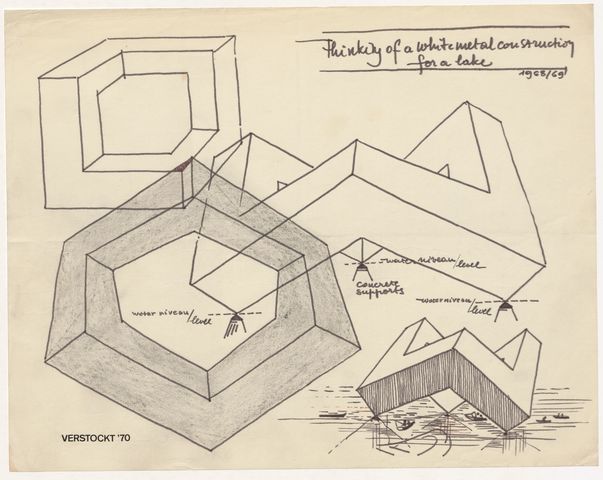 thinking of a white metal construction
for a lake
1968/69
water niveau/
level
concrete
supports
water niveau/
level
water niveau/
level
VERSTOCKT '70